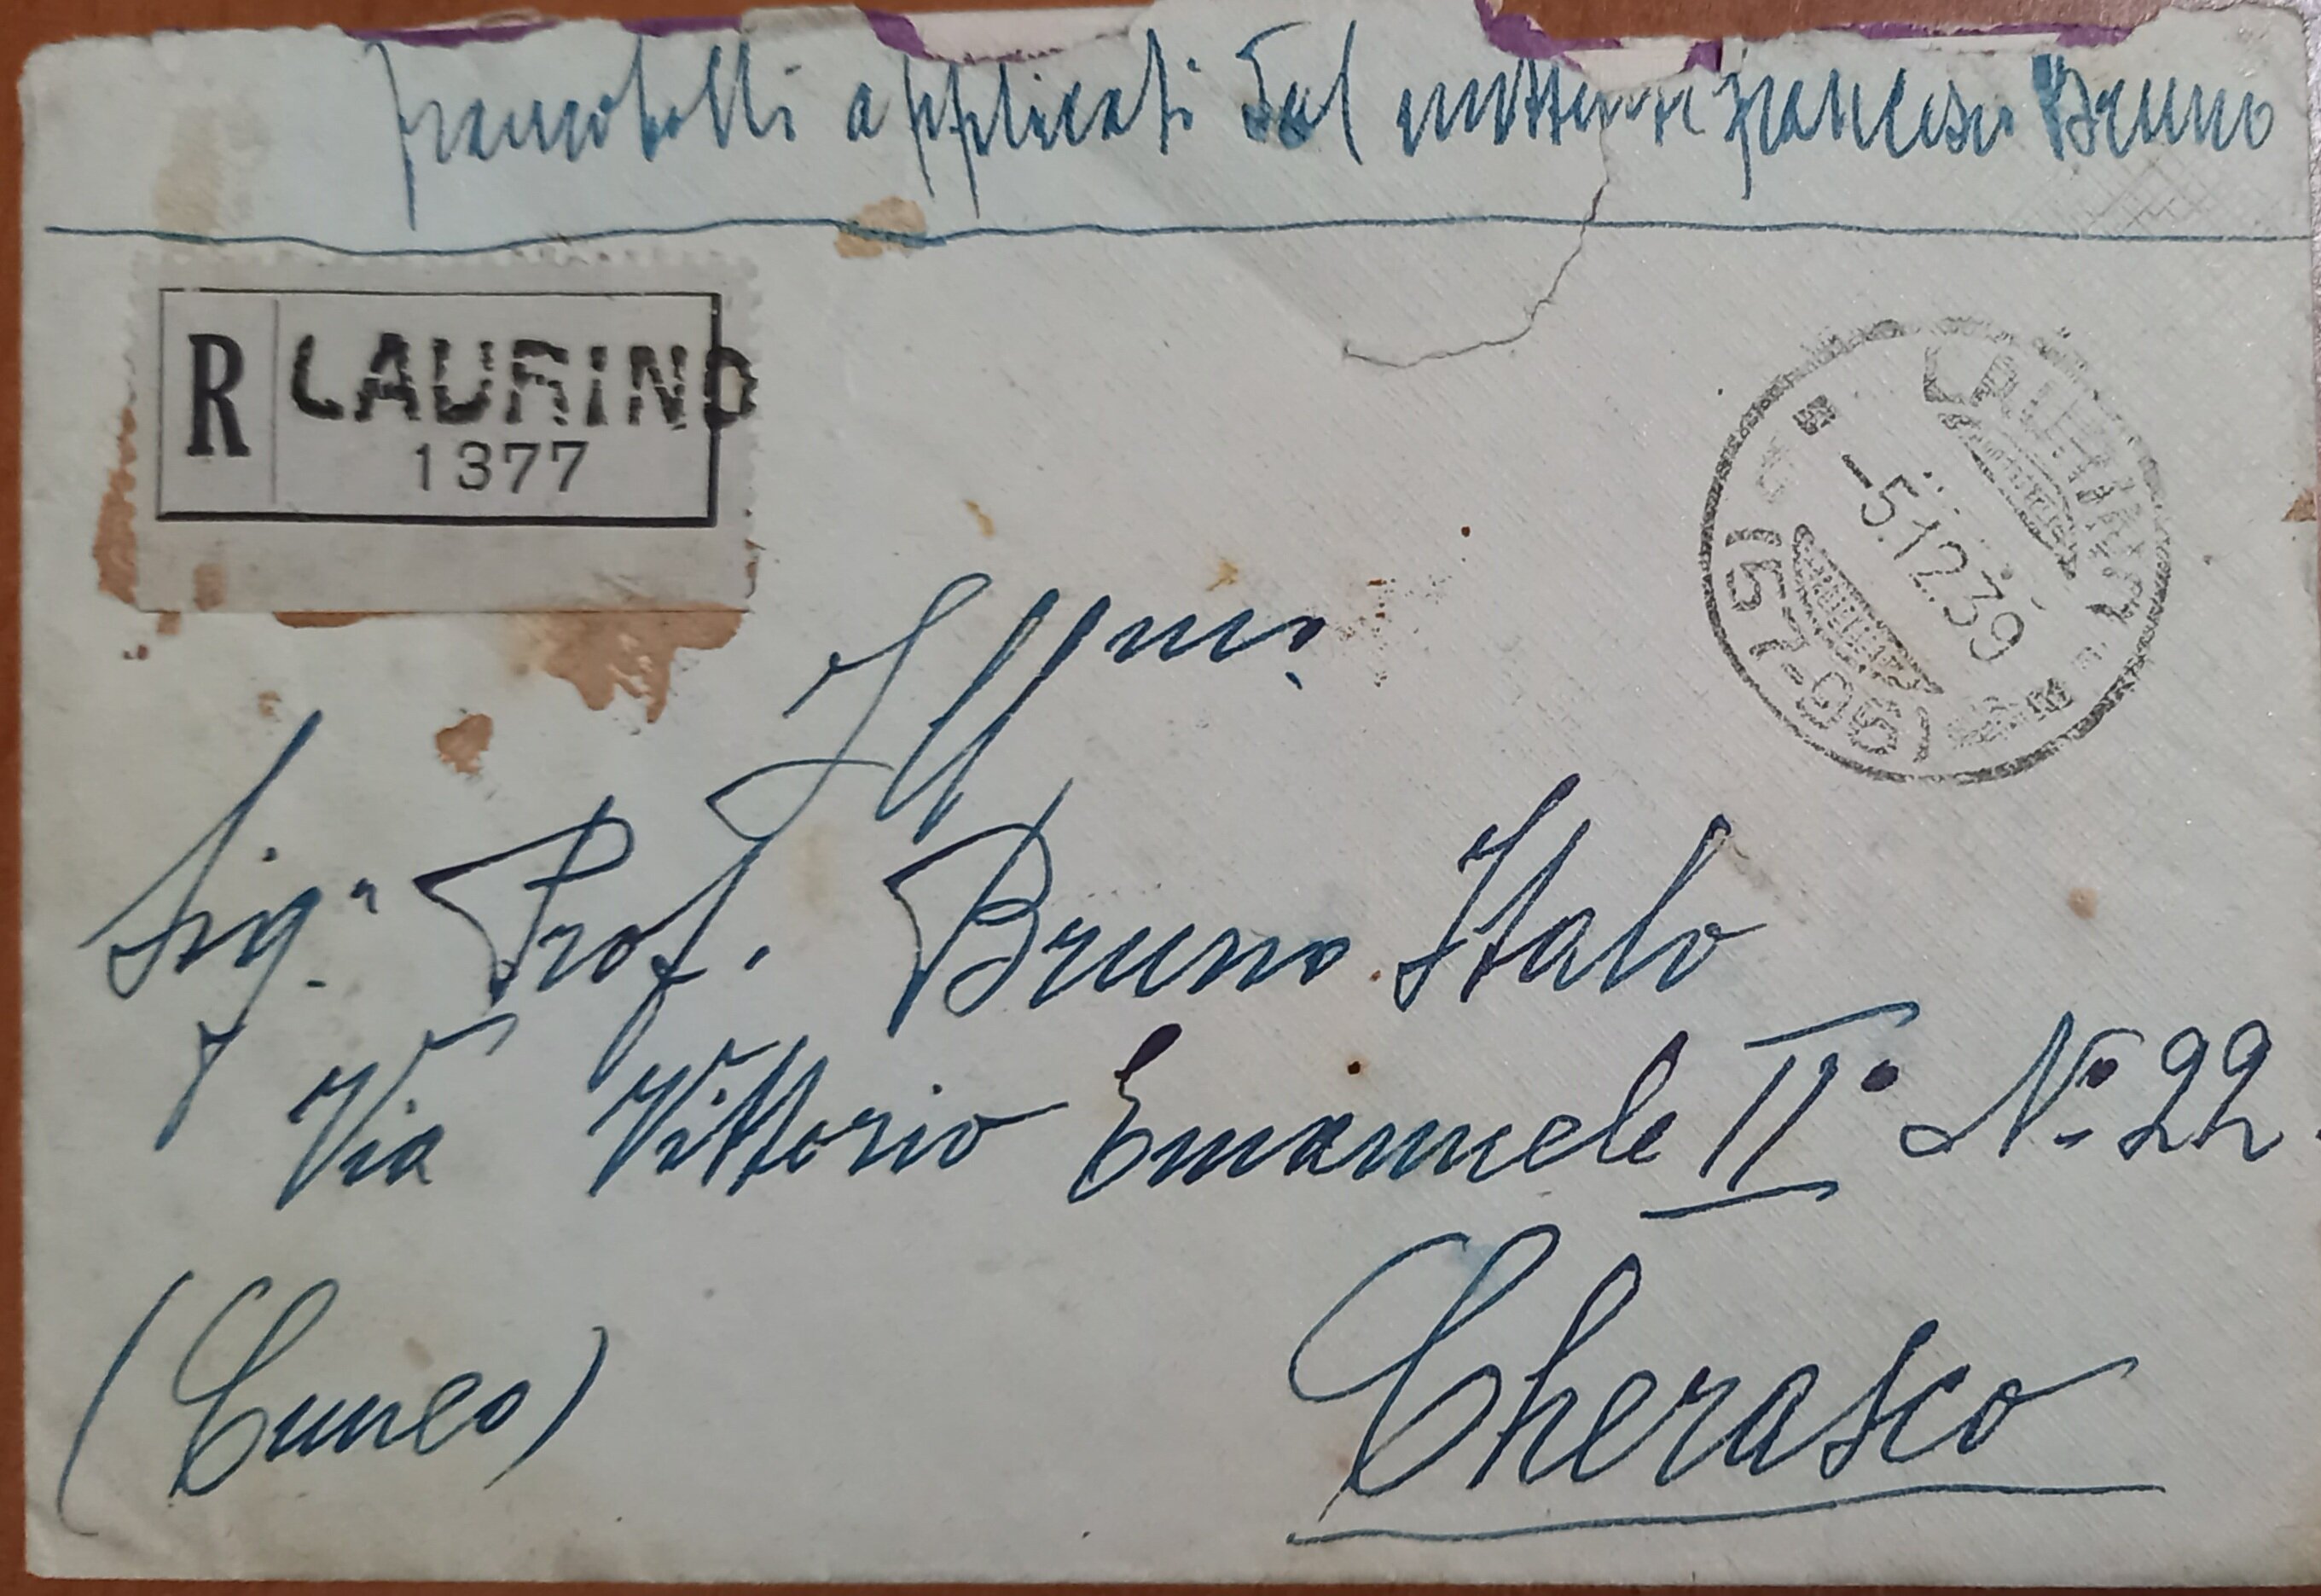 francobolli applicati dal mittente Francesco Bruno
R LAURINO
1377
-5.12.39
(57-96)
Ill.mo
Sig.r Prof. Bruno Italo
Via Vittorio Emanuele II° N° 22.
Cherasco
(Cuneo)